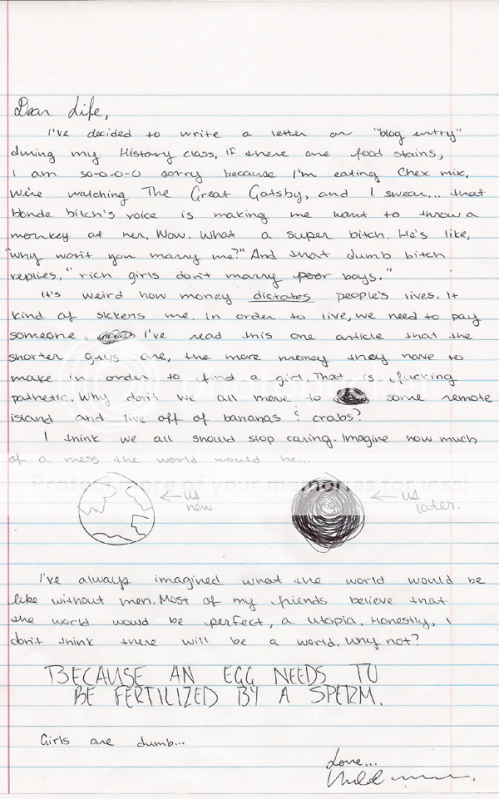 Dear Life,
I've decided to write a letter or "blog entry"
during my History class. If there are food stains,
I am so-o-o-o sorry because I'm eating Chex mix.
We're watching The Great Gatsby, and I swear... that
blonde bitch's voice is making me want to throw a
monkey at her. Wow. What a super bitch. He's like,
"Why won't you marry me?" And that dumb bitch
replies, "rich girls don't marry poor boys."
It's weird how money dictates people's lives. It
kind of sickens me. In order to live, we need to pay
someone. I've read this one article that the
shorter guys are, the more money they have to
make in order to find a girl. That is fucking
pathetic. Why don't we all move to some remote
island and live off of bananas & crabs?
I think we all should stop caring. Imagine how much
of a mess the world would be...
Protect more of your memories for less!
← us now
← us later.
I've always imagined what the world would be
like without men. Most of my friends believe that
the world would be perfect, a utopia. Honestly, I
don't think there will be a world. Why not?
BECAUSE AN EGG NEEDS TO
BE FERTILIZED BY A SPERM.
Girls are dumb...
Love...